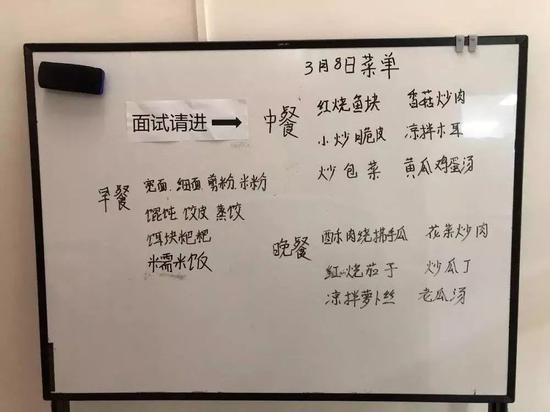 3月8日菜单
面试请进
中餐 红烧鱼块 香菇炒肉
小炒脆皮 凉拌木耳
炒包菜 黄瓜鸡蛋汤
早餐 宽面.细面.剪粉.米粉
馄饨 饺皮 蒸饺
饵块粑粑
糯米饭
晚餐 酥肉烧揚手瓜 花菜炒肉
红烧茄子 炒瓜丁
凉拌萝卜丝 老瓜汤